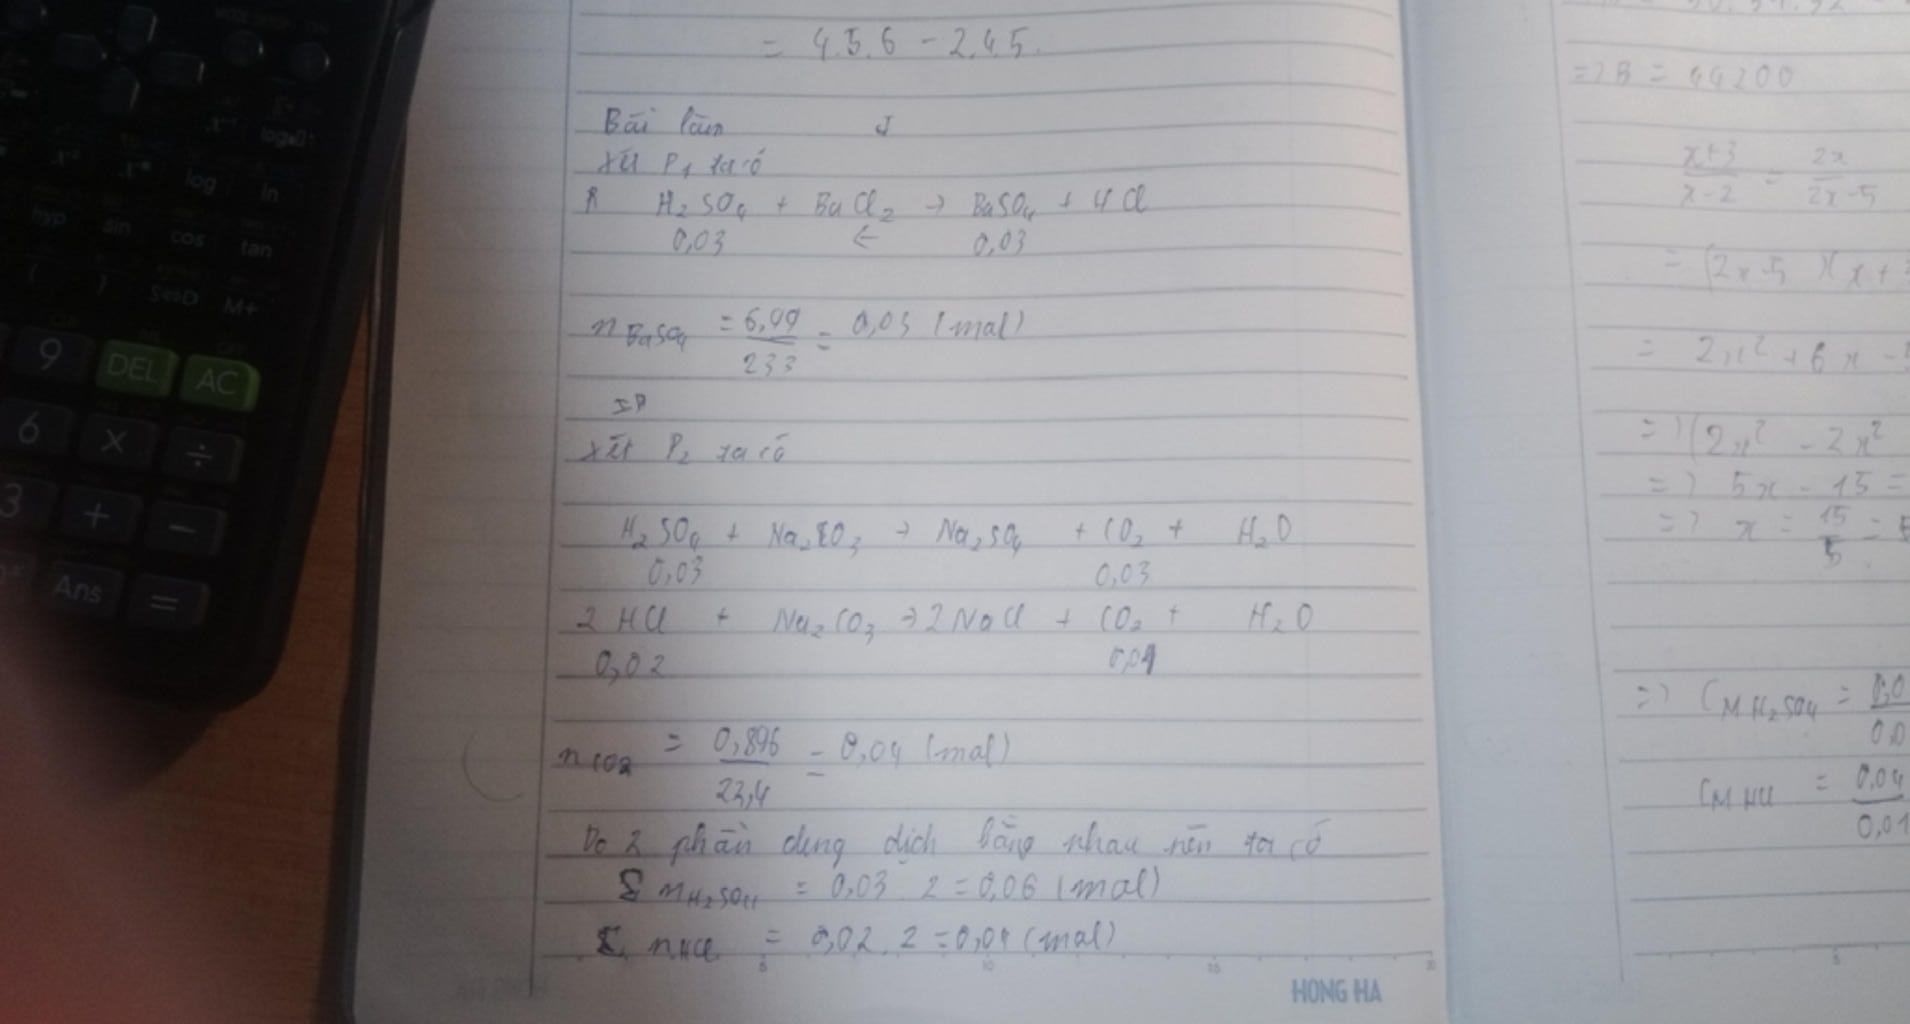 = 4.5.6 - 2.4.5.
Bài làm
Xét P1 ta có
H2SO4 + BaCl2 → BaSO4 + HCl
0,03 ← 0,03
nBaSO4 = 6,99/233 = 0,03 (mol)
Xét P2 ta có
H2SO4 + Na2CO3 → Na2SO4 + CO2 + H2O
0,03 0,03
2HCl + Na2CO3 → 2NaCl + CO2 + H2O
0,02 0,01
nCO2 = 0,896/22,4 = 0,04 (mol)
Do 2 phần dung dịch bằng nhau nên ta có
Σ nH2SO4 = 0,03.2 = 0,06 (mol)
Σ nHCl = 0,02.2 = 0,04 (mol)
5 10 15
HONG HA
=> B = 44200
x+3/x-2 = 2x/2x-5
= (2x-5)(x+
= 2x² + 6x -
=> (2x² - 2x²
=> 5x - 15 =
=> x = 15/5 =
=> CM H2SO4 = 0,0
0,0
CM HCl = 0,04/0,01
5
hyp sin cos tan
log ln
( ) S⇔D M+
9 DEL AC
6 × ÷
3 + −
Ans =